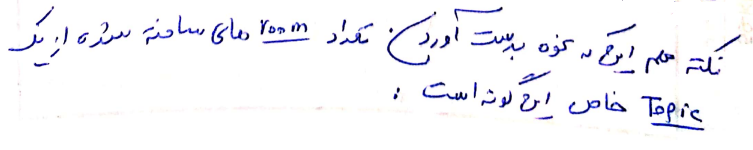 نکته مهم اینکه نحوه بدست آوردن تعداد room های ساخته شده از یک
Topic خاص این گونه است :